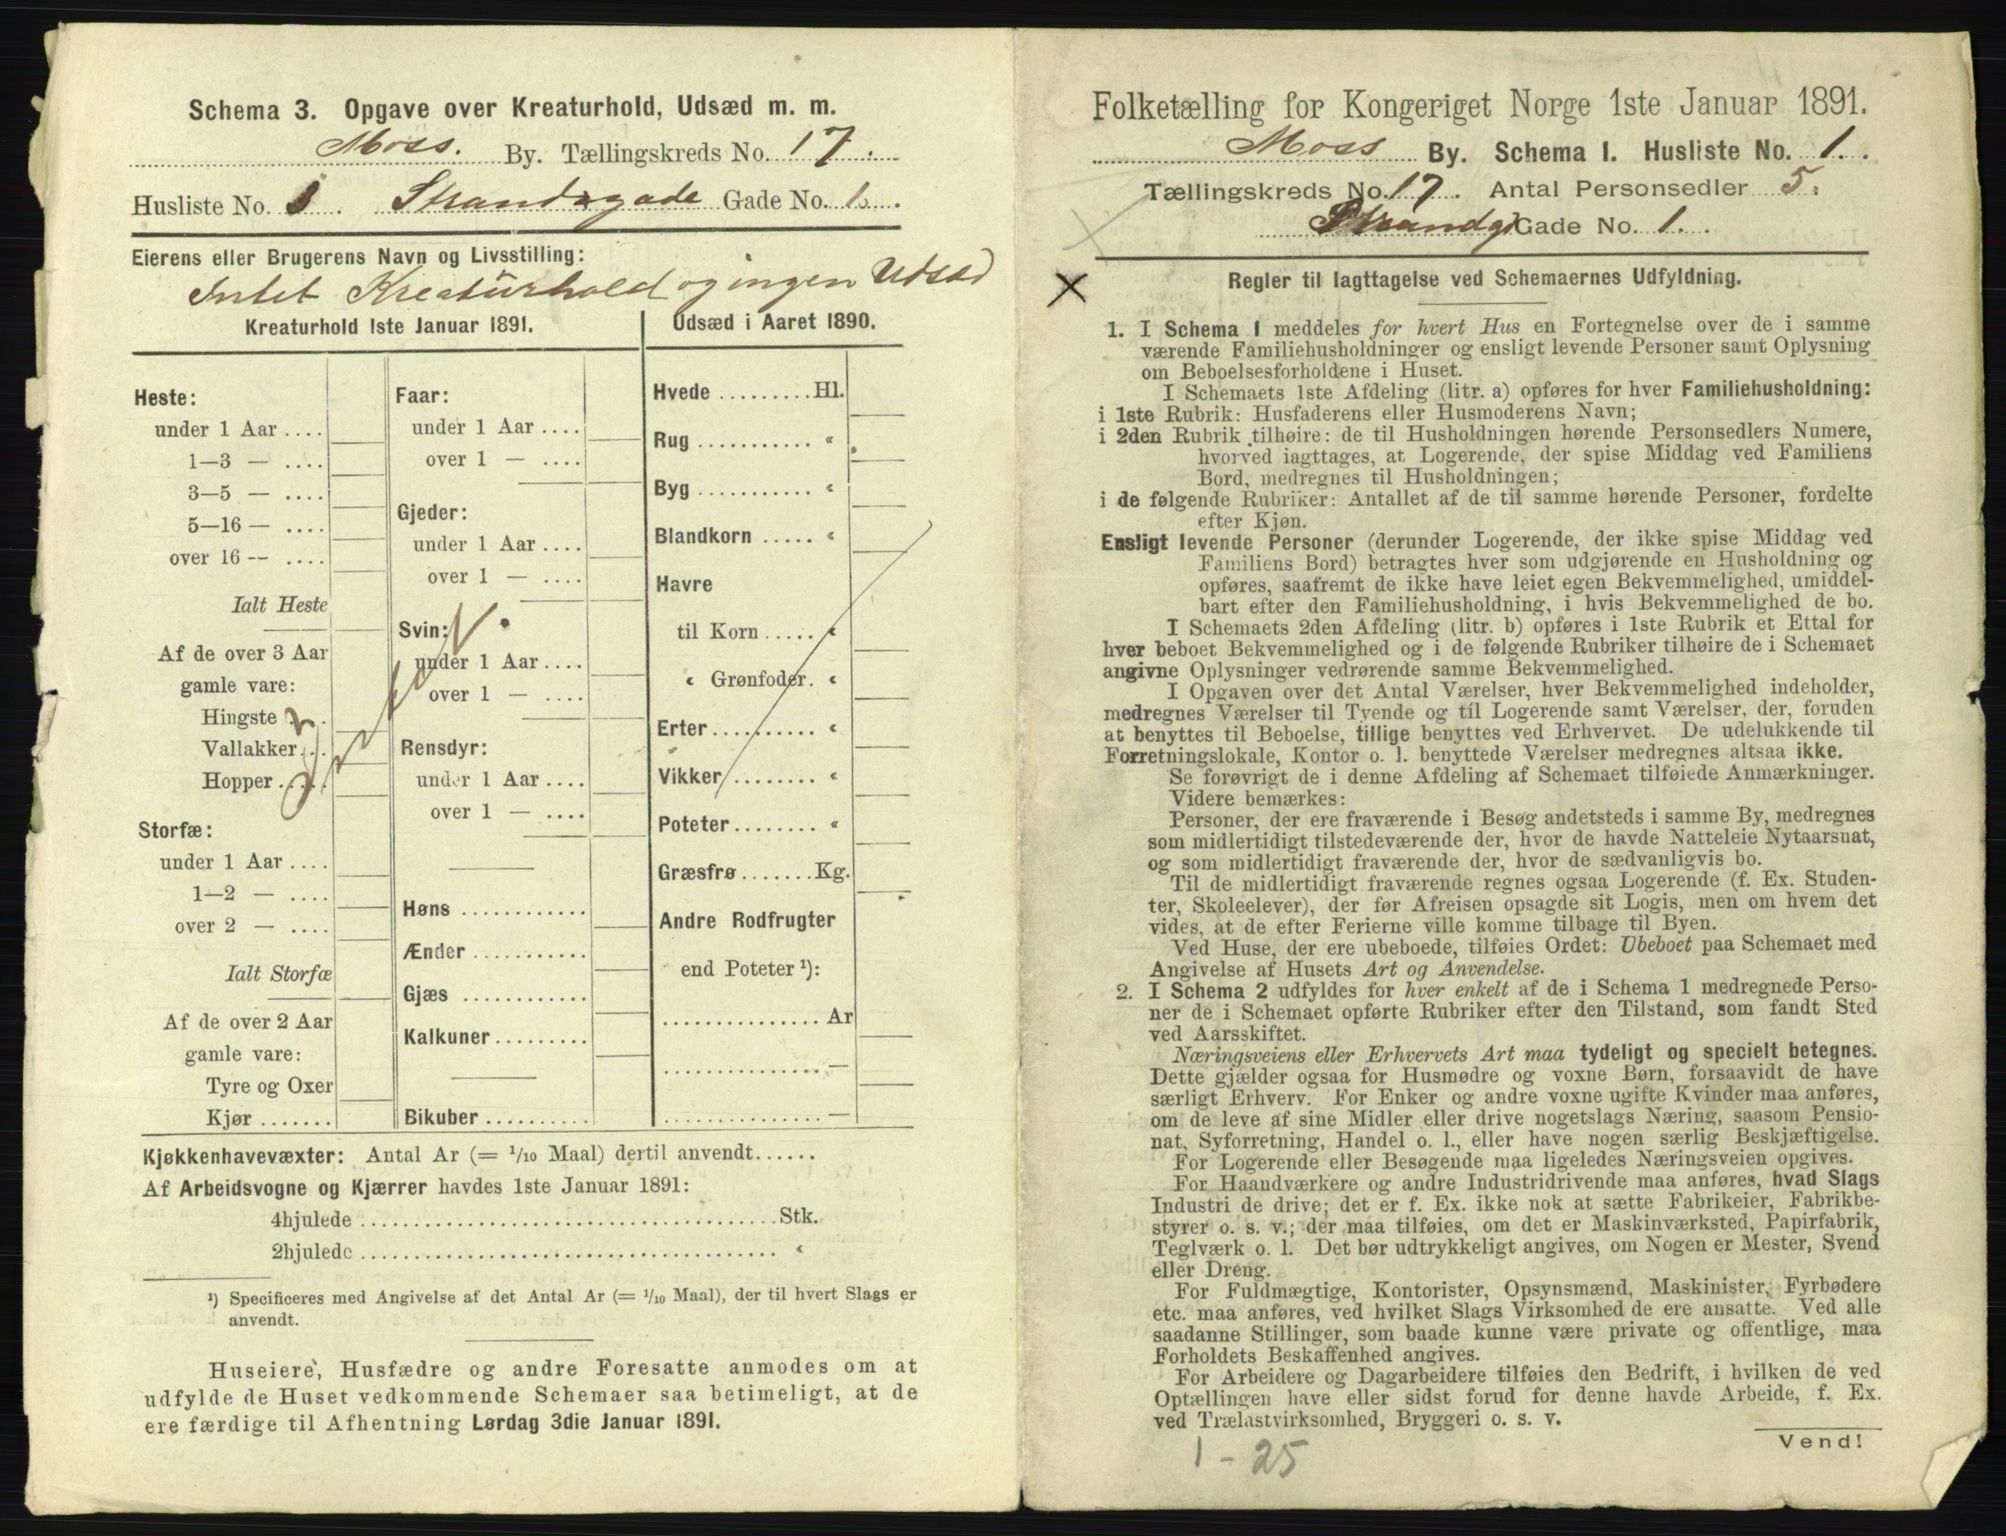 Schema 3. Opgave over Kreaturhold, Udsæd m. m.
Moss. By. Tællingskreds No. 17.
Husliste No. 1. Strandgade Gade No. 1.
Eierens eller Brugerens Navn og Livsstilling:
Intet Kreaturhold og ingen Udsæd
Kreaturhold 1ste Januar 1891.
Heste:
under 1 Aar ....
1—3 — ....
3—5 — ....
5—16 — ....
over 16 — ....
Ialt Heste
Af de over 3 Aar
gamle vare:
Hingste ...
Vallakker ...
Hopper ....
Storfæ:
under 1 Aar ....
1—2 — ....
over 2 — ....
Ialt Storfæ
Af de over 2 Aar
gamle vare:
Tyre og Oxer
Kjør .......
Faar:
under 1 Aar ....
over 1 — ....
Gjeder:
under 1 Aar ....
over 1 — ....
Svin:
under 1 Aar ....
over 1 — ....
Rensdyr:
under 1 Aar ....
over 1 — ....
Høns ............
Ænder ...........
Gjæs ............
Kalkuner .........
Bikuber ..........
Udsæd i Aaret 1890.
Hvede ......... Hl.
Rug ........... «
Byg ........... «
Blandkorn ..... «
Havre
til Korn ..... «
« Grønfoder. «
Erter .......... «
Vikker ........ «
Poteter ........ «
Græsfrø ....... Kg.
Andre Rodfrugter
end Poteter ¹):
............... Ar
............... —
............... —
Kjøkkenhavevæxter: Antal Ar (= 1/10 Maal) dertil anvendt ......
Af Arbeidsvogne og Kjærrer havdes 1ste Januar 1891:
4hjulede ....................................... Stk.
2hjulede ....................................... «
¹) Specificeres med Angivelse af det Antal Ar (= 1/10 Maal), der til hvert Slags er
anvendt.
Huseiere, Husfædre og andre Foresatte anmodes om at
udfylde de Huset vedkommende Schemaer saa betimeligt, at de
ere færdige til Afhentning Lørdag 3die Januar 1891.
Folketælling for Kongeriget Norge 1ste Januar 1891.
Moss By. Schema 1. Husliste No. 1.
Tællingskreds No. 17. Antal Personsedler 5.
Strandg Gade No. 1.
Regler til Iagttagelse ved Schemaernes Udfyldning.
1. I Schema 1 meddeles for hvert Hus en Fortegnelse over de i samme
værende Familiehusholdninger og ensligt levende Personer samt Oplysning
om Beboelsesforholdene i Huset.
I Schemaets 1ste Afdeling (litr. a) opføres for hver Familiehusholdning:
i 1ste Rubrik: Husfaderens eller Husmoderens Navn;
i 2den Rubrik tilhøire: de til Husholdningen hørende Personsedlers Numere,
hvorved iagttages, at Logerende, der spise Middag ved Familiens
Bord, medregnes til Husholdningen;
i de følgende Rubriker: Antallet af de til samme hørende Personer, fordelte
efter Kjøn.
Ensligt levende Personer (derunder Logerende, der ikke spise Middag ved
Familiens Bord) betragtes hver som udgjørende en Husholdning og
opføres, saafremt de ikke have leiet egen Bekvemmelighed, umiddel-
bart efter den Familiehusholdning, i hvis Bekvemmelighed de bo.
I Schemaets 2den Afdeling (litr. b) opføres i 1ste Rubrik et Ettal for
hver beboet Bekvemmelighed og i de følgende Rubriker tilhøire de i Schemaet
angivne Oplysninger vedrørende samme Bekvemmelighed.
I Opgaven over det Antal Værelser, hver Bekvemmelighed indeholder,
medregnes Værelser til Tyende og til Logerende samt Værelser, der, foruden
at benyttes til Beboelse, tillige benyttes ved Erhvervet. De udelukkende til
Forretningslokale, Kontor o. l. benyttede Værelser medregnes altsaa ikke.
Se forøvrigt de i denne Afdeling af Schemaet tilføiede Anmærkninger.
Videre bemærkes:
Personer, der ere fraværende i Besøg andetsteds i samme By, medregnes
som midlertidigt tilstedeværende der, hvor de havde Natteleie Nytaarsnat,
og som midlertidigt fraværende der, hvor de sædvanligvis bo.
Til de midlertidigt fraværende regnes ogsaa Logerende (f. Ex. Studen-
ter, Skoleelever), der før Afreisen opsagde sit Logis, men om hvem det
vides, at de efter Ferierne ville komme tilbage til Byen.
Ved Huse, der ere ubeboede, tilføies Ordet: Ubeboet paa Schemaet med
Angivelse af Husets Art og Anvendelse.
2. I Schema 2 udfyldes for hver enkelt af de i Schema 1 medregnede Perso-
ner de i Schemaet opførte Rubriker efter den Tilstand, som fandt Sted
ved Aarsskiftet.
Næringsveiens eller Erhvervets Art maa tydeligt og specielt betegnes.
Dette gjælder ogsaa for Husmødre og voxne Børn, forsaavidt de have
særligt Erhverv. For Enker og andre voxne ugifte Kvinder maa anføres,
om de leve af sine Midler eller drive nogetslags Næring, saasom Pensio-
nat, Syforretning, Handel o. l., eller have nogen særlig Beskjæftigelse.
For Logerende eller Besøgende maa ligeledes Næringsveien opgives.
For Haandværkere og andre Industridrivende maa anføres, hvad Slags
Industri de drive; det er f. Ex. ikke nok at sætte Fabrikeier, Fabrikbe-
styrer o. s. v.; der maa tilføies, om det er Maskinværksted, Papirfabrik,
Teglværk o. l. Det bør udtrykkeligt angives, om Nogen er Mester, Svend
eller Dreng.
For Fuldmægtige, Kontorister, Opsynsmænd, Maskinister, Fyrbødere
etc. maa anføres, ved hvilket Slags Virksomhed de ere ansatte. Ved alle
saadanne Stillinger, som baade kunne være private og offentlige, maa
Forholdets Beskaffenhed angives.
For Arbeidere og Dagarbeidere tilføies den Bedrift, i hvilken de ved
Optællingen have eller sidst forud for denne havde Arbeide, f. Ex.
ved Trælastvirksomhed, Bryggeri o. s. v.
Vend!
1 - 25